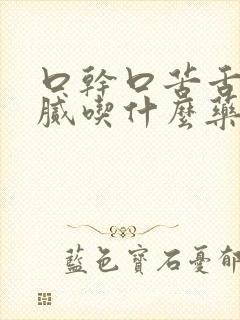 口幹口苦舌
膩喫什麼藥
藍色寶石憂郁